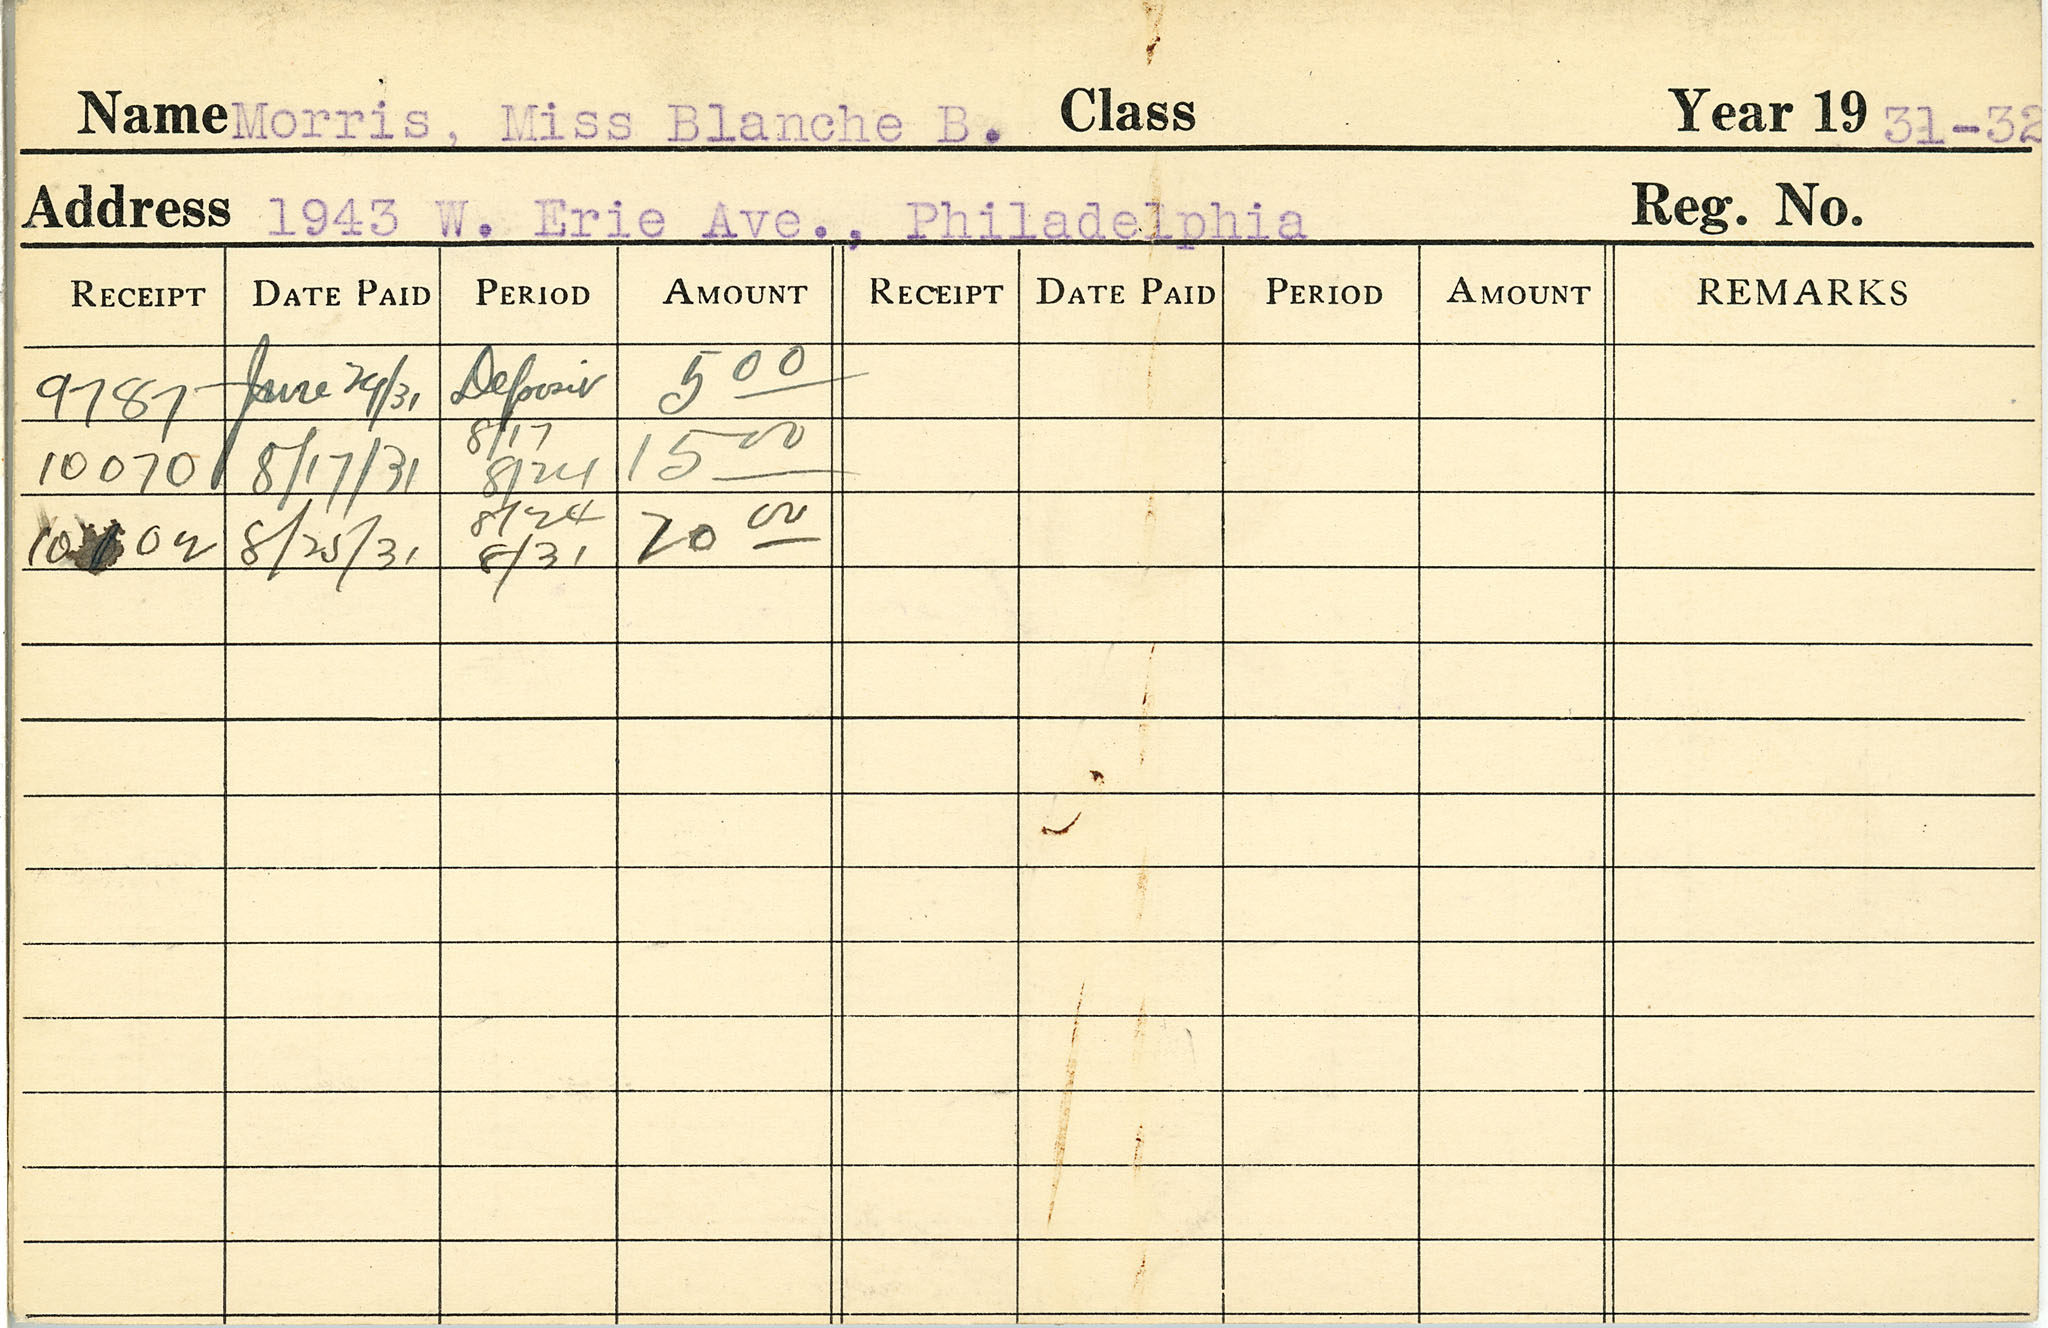 Name Morris, Miss Blanche B. Class Year 19 31-32
Address 1943 W. Erie Ave., Philadelphia Reg. No.
RECEIPT DATE PAID PERIOD AMOUNT RECEIPT DATE PAID PERIOD AMOUNT REMARKS
9787 June 29/31 Deposit 5 00
8/17
10070 8/17/31 8/24 15 00
8/24
10102 8/25/31 8/31 20 00